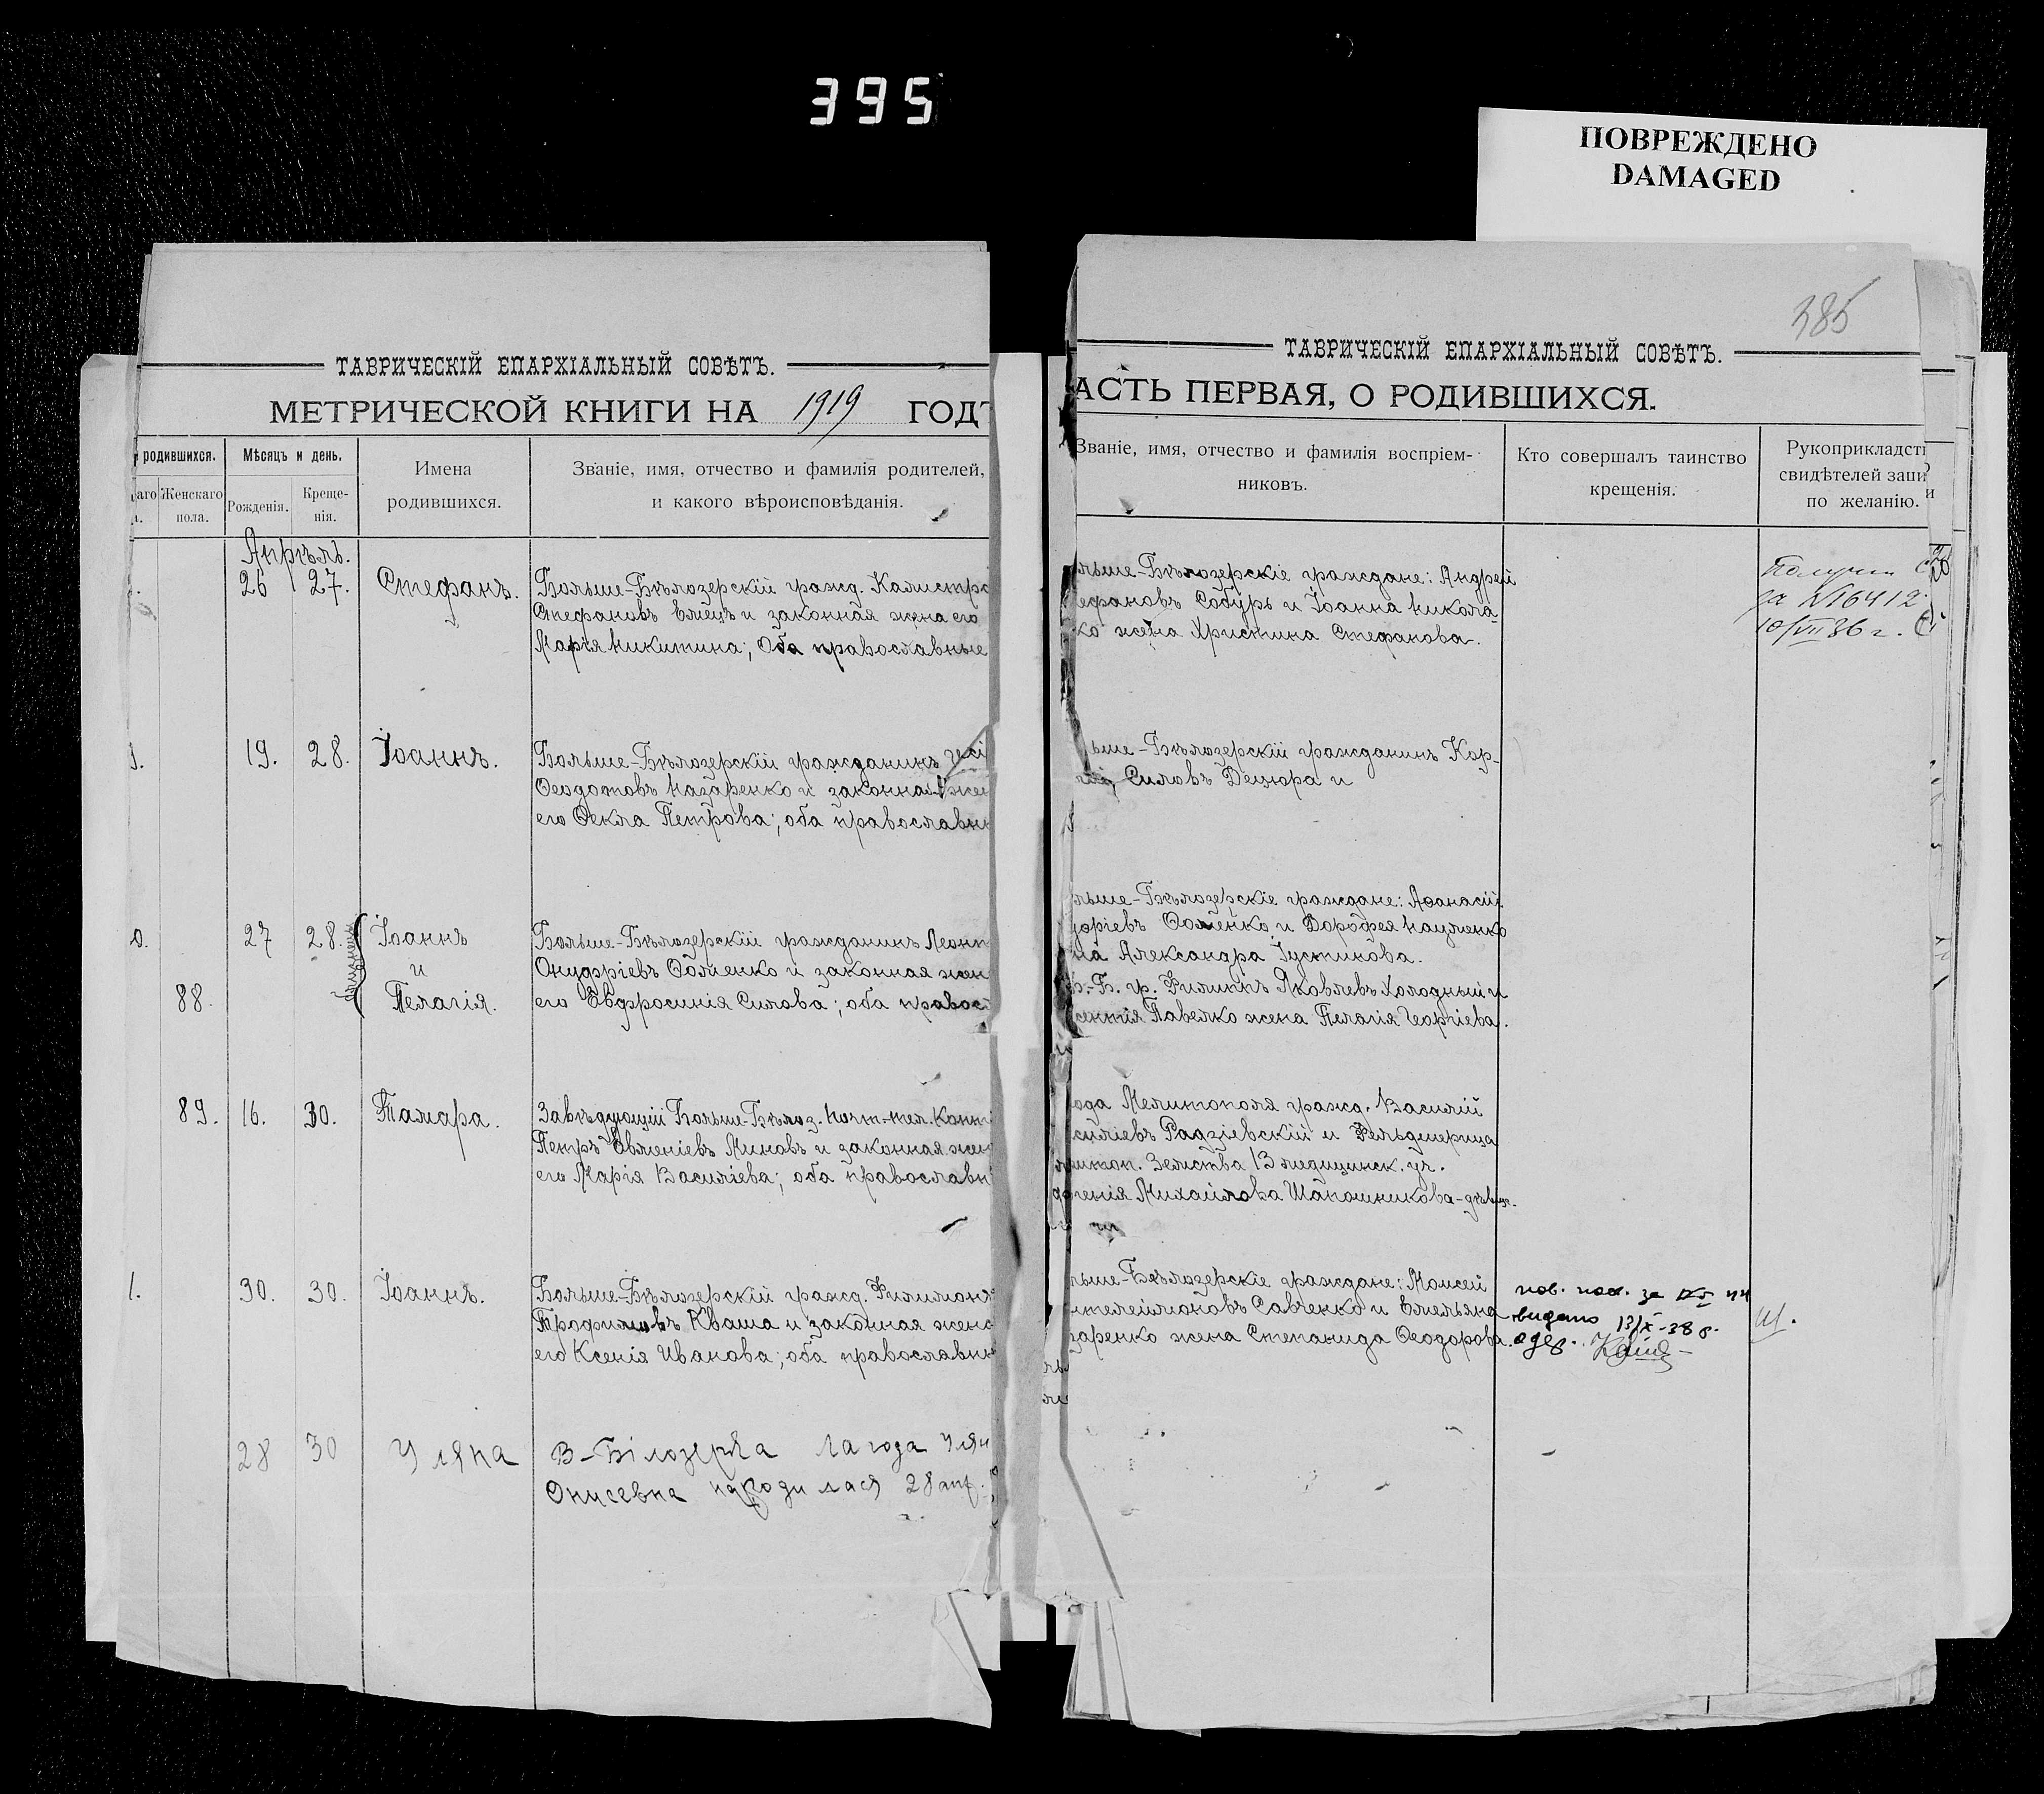 395
ПОВРЕЖДЕНО
DAMAGED
385
ТАВРИЧЕСКІЙ ЕПАРХІАЛЬНЫЙ СОВѢТЪ.
МЕТРИЧЕСКОЙ КНИГИ НА 1919 ГОДЪ
родившихся.
Мѣсяцъ и день.
Имена
родившихся.
Званіе, имя, отчество и фамилія родителей,
и какого вѣроисповѣданія.
Женскаго
пола.
Рожденія.
Креще-
нія.
Апрѣль.
26 27. Стефанъ. Больше-Бѣлозерскій гражд. Калистра
Стефановъ и законная жена его
Марія Никитина; оба православные
19. 28. Іоаннъ. Больше-Бѣлозерскій гражданинъ
Ѳеодотовъ Назаренко и законная жен
его Ѳекла Петрова; оба православн
27 28. Іоаннъ Больше-Бѣлозерскій гражданинъ Леон
и Онуфріевъ Ѳоменко и законная жен
88. Пелагія. его Евфросинія Силова; оба правос
89. 16. 30. Тамара. Завѣдующій Больше-Бѣлоз. почт-тел. Конт
Петръ Миновъ и законная жен
его Марія Василіева; оба православн
30. 30. Іоаннъ. Больше-Бѣлозерскій гражд. Филимонъ
Трофимовъ Кваша и законная жена
его Ксенія Иванова; оба православн
28 30 Уляна В-Білозерка Лагода Улян
Онисевна народилася 28 апр.
ТАВРИЧЕСКІЙ ЕПАРХІАЛЬНЫЙ СОВѢТЪ.
АСТЬ ПЕРВАЯ, О РОДИВШИХСЯ.
Званіе, имя, отчество и фамилія воспріем-
никовъ.
Кто совершалъ таинство
крещенія.
Рукоприкладст
свидѣтелей запи
по желанію.
льше-Бѣлозерскіе граждане: Андрей
ефановъ Собуръ и Іоанна Никола-
ко жена Христина Стефанова.
за №16412
10/VII 36 г.
ьше-Бѣлозерскій гражданинъ Кор-
Силовъ Децюра и
льше-Бѣлозерскіе граждане: Аѳанасій
Ѳоменко и Дорофея Науменко
на Александра Іустинова.
Б.-Б. гр. Филиппъ Яковлевъ Холодный и
Павелко жена Пелагія Георгіева.
ода Мелитополя гражд. Василій
силіевъ Радзіевскій и Фельдшерица
литоп. Земства 13 медицинск. уч.
Михайлова Шапошникова-дѣвиц.
льше-Бѣлозерскіе граждане: Моисей
нтелеимоновъ Савченко и Емельяна
заренко жена Степанида Ѳеодорова.
видано 13/X-38 р.